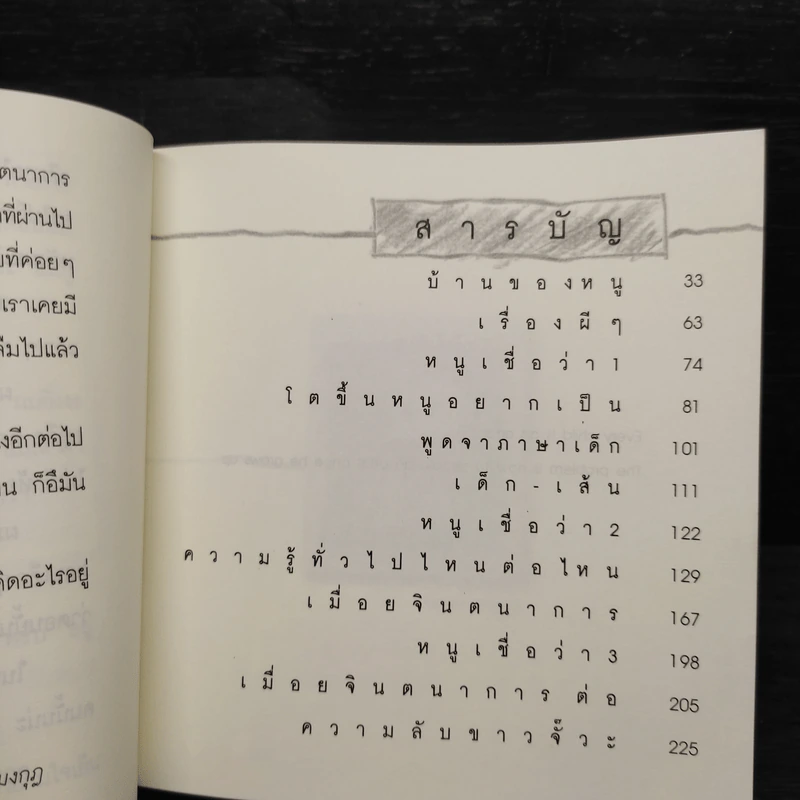 ตนาการ
ที่ผ่านไป
ที่ค่อยๆ
เราเคยมี
ลืมไปแล้ว
งอีกต่อไป
ก็อืมัน
คิดอะไรอยู่
บงกุฎ
สารบัญ
บ้านของหนู 33
เรื่องผีๆ 63
หนูเชื่อว่า 1 74
โตขึ้นหนูอยากเป็น 81
พูดจาภาษาเด็ก 101
เด็ก-เส้น 111
หนูเชื่อว่า 2 122
ความรู้ทั่วไปไหนต่อไหน 129
เมื่อยจินตนาการ 167
หนูเชื่อว่า 3 198
เมื่อยจินตนาการ ต่อ 205
ความลับขาวจั๊วะ 225